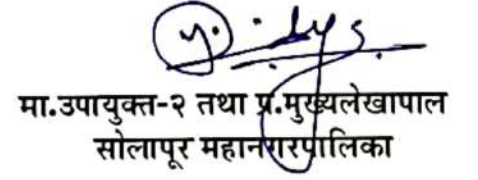 मा.उपायुक्त-२ तथा प्र.मुख्यलेखापाल
सोलापूर महानगरपालिका